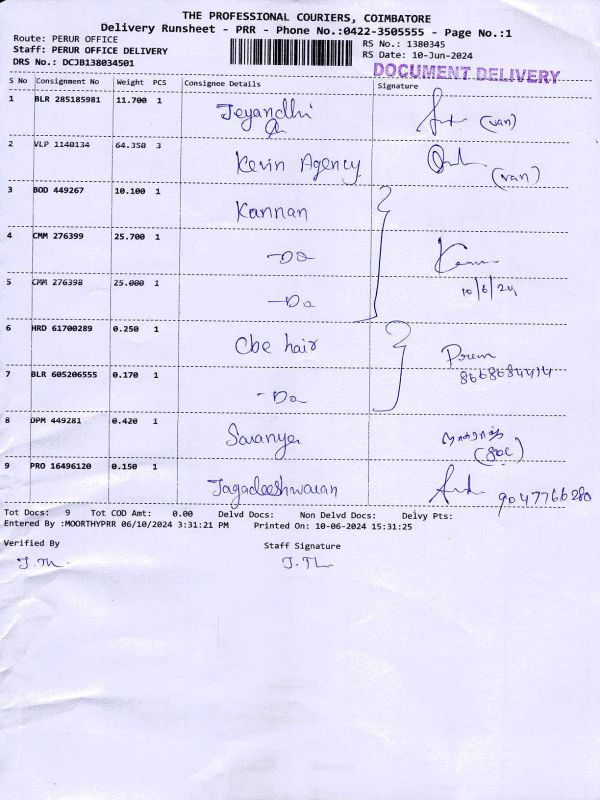 THE PROFESSIONAL COURIERS, COIMBATORE
Delivery Runsheet - PRR - Phone No.:0422-3505555 - Page No.:1
Route: PERUR OFFICE
Staff: PERUR OFFICE DELIVERY
DRS No.: DCJB138034501
RS No.: 1380345
RS Date: 10-Jun-2024
DOCUMENT DELIVERY
S No Consignment No Weight PCS Consignee Details Signature
1 BLR 285185981 11.700 1 Jeyandhi (van)
2 VLP 1140134 64.350 3 Kevin Agency (van)
3 BOD 449267 10.100 1 Kannan
4 CMM 276399 25.700 1 -Do
5 CMM 276398 25.000 1 -Do 10/6/24
6 HRD 61700289 0.250 1 Cbe hair Prem
7 BLR 605206555 0.170 1 -Do
8 DPM 449281 0.420 1 Saranya
9 PRO 16496120 0.150 1 Jagadeeshwaran 9047766280
Tot Docs: 9 Tot COD Amt: 0.00 Delvd Docs: Non Delvd Docs: Delvy Pts:
Entered By :MOORTHYPRR 06/10/2024 3:31:21 PM Printed On: 10-06-2024 15:31:25
Verified By Staff Signature